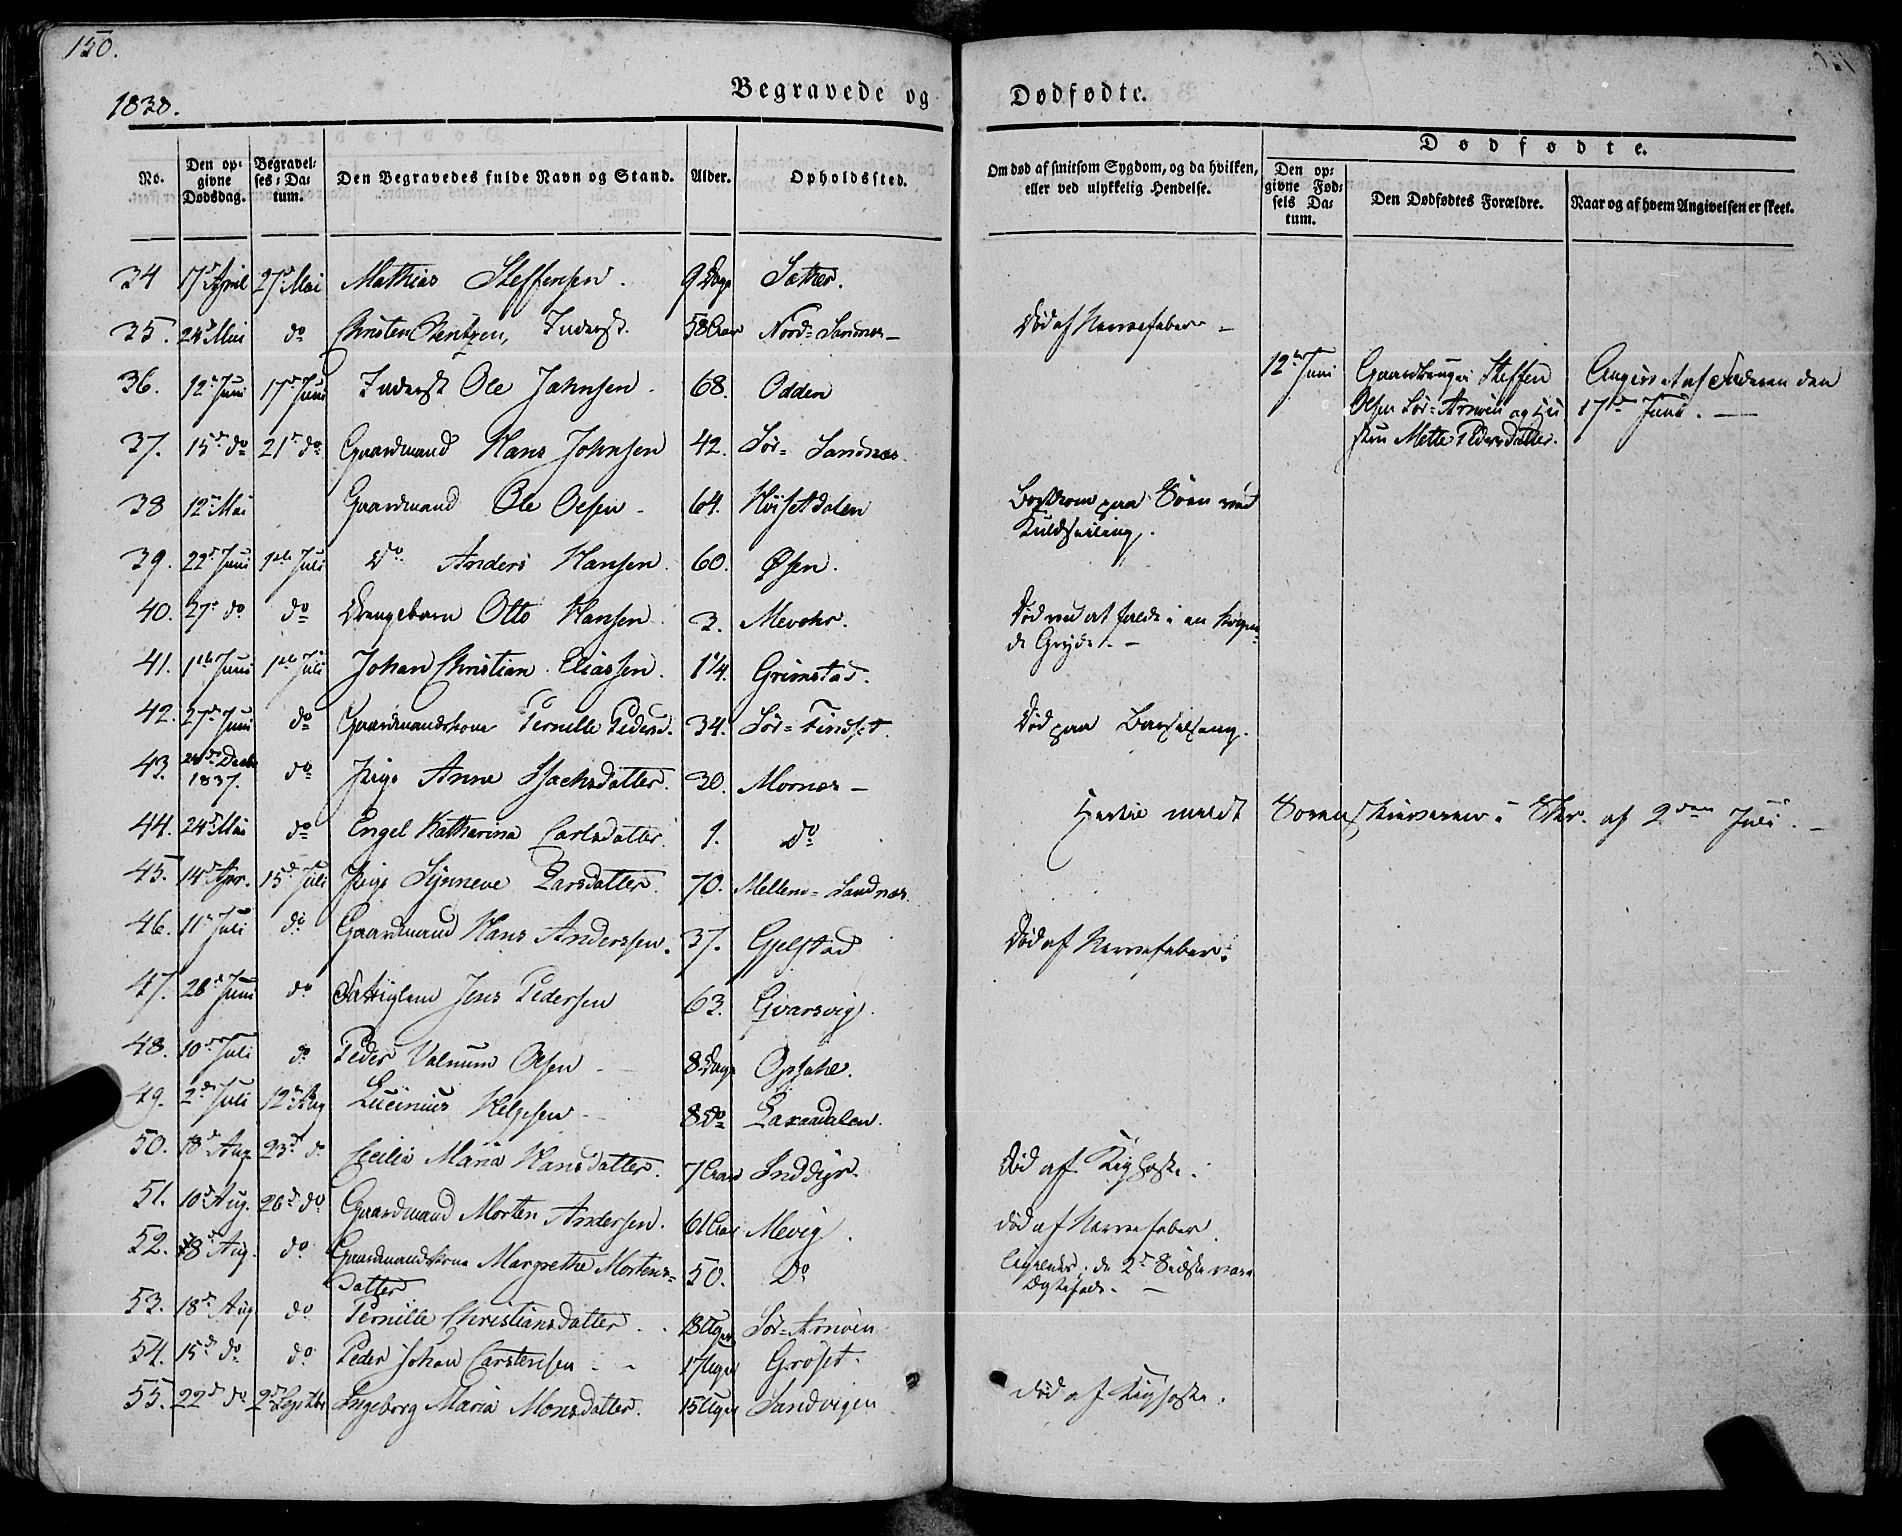 150.
1838.
Begravede og Dødfødte.
No.
Den opgivne Dødsdag.
Begravelses-Datum.
Den Begravedes fulde Navn og Stand.
Alder.
Opholdssted.
Om død af smitsom Sygdom, og da hvilken, eller ved ulykkelig Hendelse.
Dødfødte.
Den opgivne Fødsels Datum.
Den Dødfødtes Forældre.
Naar og af hvem Angivelsen er skeet.
34 17d April 27d Mai Mathias Steffensen. 9 Dage Sæther.
35. 24d Mai do Christen Bentzen, Inderst. 58 Aar Nord-Sandnes - Død af Nervefeber -
36. 12te Juni 17d Juni Inderst Ole Johnsen. 68. Odden
12te Juni Gaardbruger Steffen Olsen Sør-Arnøen og Hustru Mette Pedersdatter. Angivet af Faderen den 17de Juni. -
37. 15d do 21d do Gaardmand Hans Johnsen 42. Sør-Sandnes.
38 12te Mai Gaardmand Ole Olsen - 64. Høisetdalen Bortkom paa Søen ved Kuldseiling.
39. 22d Juni 1ste Juli Do Anders Hansen. 60. Øsen.
40. 27d do do Drengebarn Otto Hansen. 3. Mevohr. Død ved at falde i en kogende Gryde. -
41. 1ste Juni 1ste Juli Johan Christian Eliassen. 1 1/4. Grimstad.
42. 27de Juni do Gaardmandskone Pernille Pedersd. 34. Sør-Findset. Død paa Barselseng.
43. 24de Decbr 1837. do Pige Anne Isachsdatter. 30. Mornæs -
44. 24d Mai do Engel Katharina Carlsdatter. 1. Do Hertil meldt Sorenskriveren i Skr. af 2den Juli. -
45. 14d Apr. 15d Juli Pige Synneve Larsdatter. 70. Mellem-Sandnæs.
46. 11te Juli do Gaardmand Hans Anderssen. 37. Gjelstad Død af Nervefeber.
47. 26d Juni do Fattiglem Jens Pedersen 63. Gvarsvig.
48. 10de Juli do Peder Valnum Olsen - 8 Dage Opsahl.
49. 2de Juli 12te Aug Lucinius Helgesen - 8 Do Laxaadalen.
50. 18d Aug 23d do Cecilia Maria Hansdatter. 7 Aar Inddyr. Død af Kighoste.
51. 10d Aug. 26d do Gaardmand Morten Andersen. 61 Aar Mevig. død af Nervefeber.
52. 18d Aug. do Gaardmandskone Margrethe Mortensdatter 50. Do de 2d Sidste vare Ægtefolk. -
53. 18d Aug do Pernille Christiansdatter. 18 Uger Sør-Arnøen
54. 15d do do Peder Johan Carstensen - 17 Uger Grøset.
55. 22d do 2d Septbr Ingeborg Maria Monsdatter. 15 Uger Sandvigen død af Kighoste.